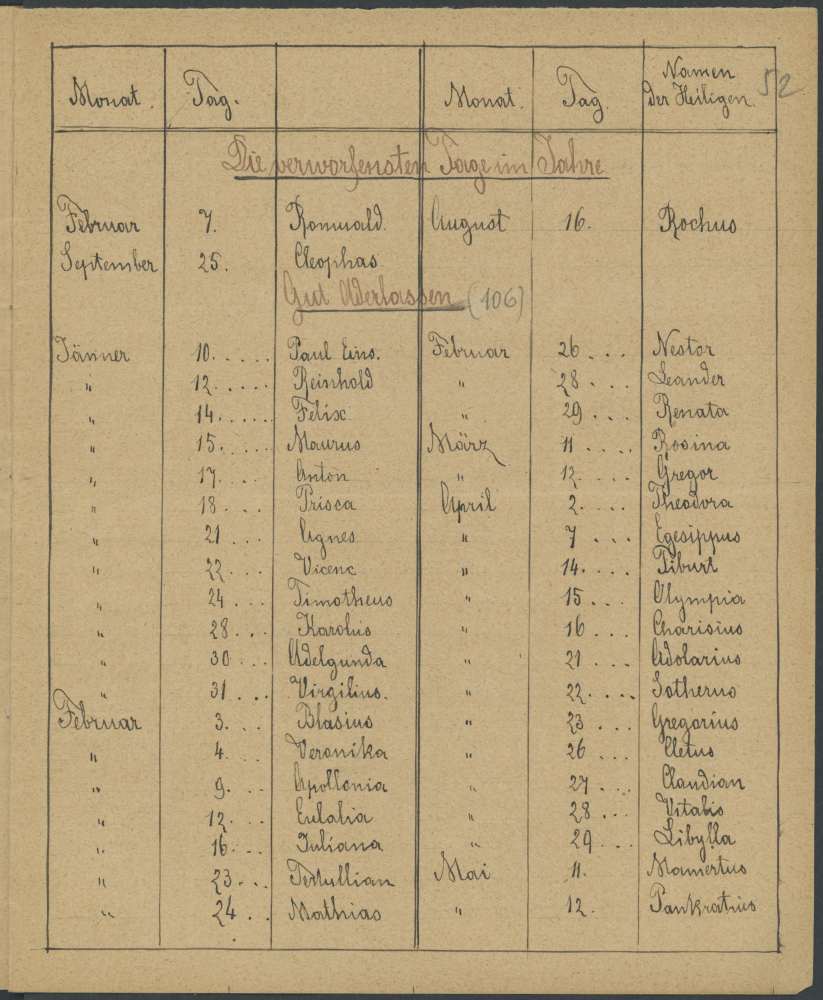 52
Monat. Tag. Monat. Tag. Namen der Heiligen.
Die verworfensten Tage im Jahre
Februar 7. Romuald. August 16. Rochus
September 25. Cleophas
Gut Aderlassen (106)
Jänner 10. .... Paul Eins. Februar 26 ... Nestor
" 12. .... Reinhold " 28 ... Leander
" 14. .... Felix " 29 ... Renata
" 15. .... Maurus März 11 .... Rosina
" 17. ... Anton " 12. ... Gregor
" 18. ... Prisca April 2. ... Theodora
" 21 ... Agnes " 7 ... Egesippus
" 22. ... Vicenc " 14. ... Tiburt
" 24 ... Timotheus " 15 ... Olympia
" 28 ... Karolus " 16 ... Charisius
" 30 ... Adelgunda " 21 ... Adolarius
" 31 ... Virgilius. " 22. ... Sotherus
Februar 3. ... Blasius " 23 ... Gregorius
" 4. ... Veronika " 26 ... Cletus
" 9. ... Apollonia " 27 ... Claudian
" 12. ... Eulalia " 28 ... Vitalis
" 16. ... Juliana " 29 ... Libylla
" 23 ... Tertullian Mai 11. Mamertus
" 24 .. Mathias " 12. Pankratius